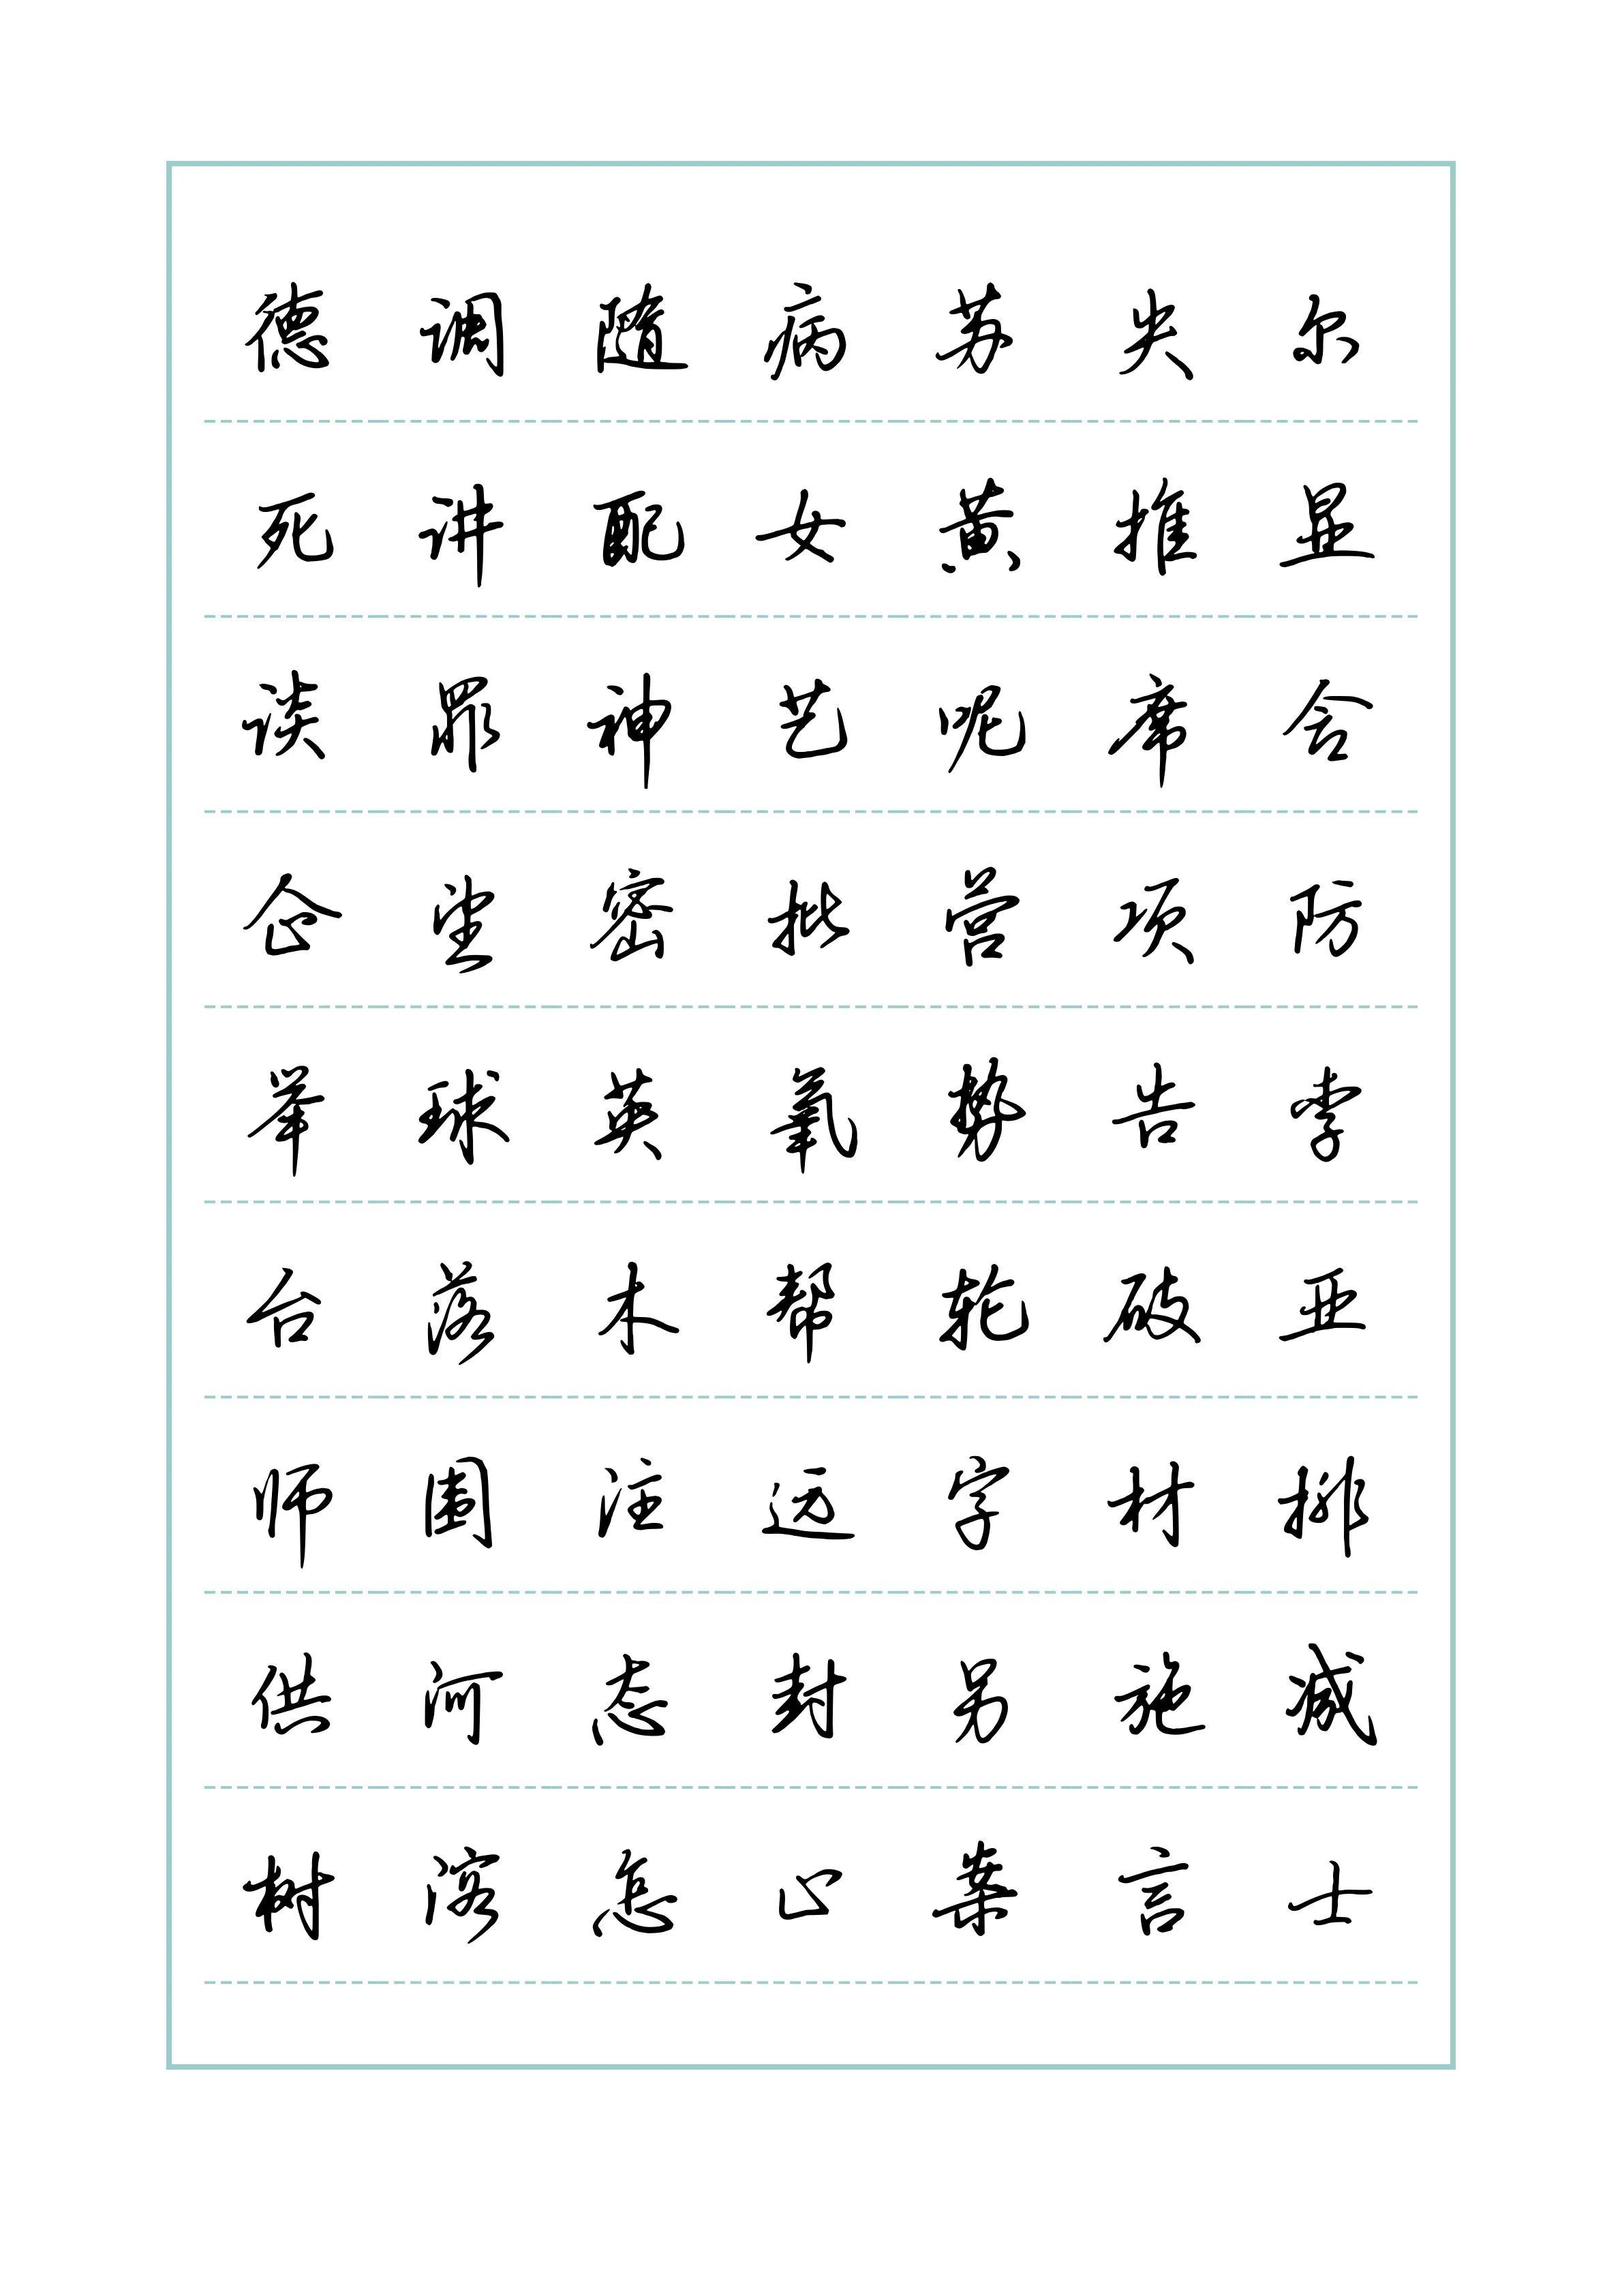 德调随病苏失尔
死讲配女黄推显
谈罪神艺呢席含
企望密批营项防
举球英氧势告李
台落木帮轮破亚
师围注远字材排
供河态封另施减
树溶怎止案言士